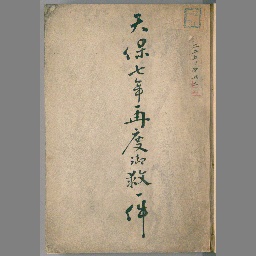 天保七年再度御救一件